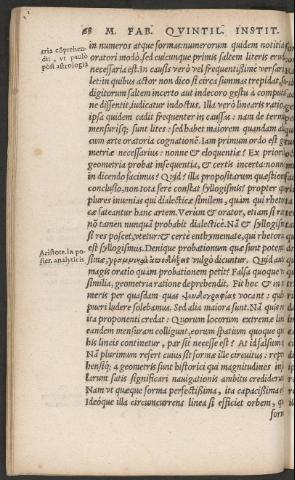 68 M. FAB. QVINTIL. INSTIT.
in numeros atque formas: numerorum quidem notitia
oratori modò, sed cuicunque primis saltem literis erud
necessaria est. In causis verò vel frequentissime versari
let: in quibus actor non dico si circa summas trepidat, s
digitorum saltem incerto aut indecoro gestu à computa
ne dissentit, iudicatur indoctus. Illa verò linearis ratio
ipsa quidem cadit frequenter in causas: nam de termi
mensurisq; sunt lites: sed habet maiorem quandam a
cum arte oratoria cognationē. Iam primum ordo est ge
metriæ necessarius: nonne & eloquentiæ? Ex prior
geometria probat insequentia, & certis incerta: nonne
in dicendo facimus? Quid? illa propositarum quæstion
conclusio, non tota ferè constat syllogismis? propter q
plures inuenias qui dialecticæ similem, quàm qui rhetori
cæ fateantur hanc artem. Verùm & orator, etiam si ra
nō tamen nunquā probabit dialecticè. Nā & syllogis
si res poscet, vtetur: & certè enthymemate, qui rhetori
est syllogismus. Denique probationum quæ sunt poten
simæ, γραμμικαὶ ἀποδείξεις vulgò dicuntur. Quid au
magis oratio quàm probationem petit? Falsa quoque v
similia, geometria ratione deprehendit. Fit hoc & in
meris per quasdam quas ψευδογραφίας vocant: qui
pueri ludere solebamus. Sed alia maiora sunt. Nā quis n
ita proponenti credat: Quorum locorum extremæ lin
eandem mensuram colligunt, eorum spatium quoque q
his lineis continetur, par sit necesse est? At id falsum
Nā plurimum refert cuius sit formæ ille circuitus: rep
hensiq; a geometris sunt historici qui magnitudines in
larum satis significari nauigationis ambitu credideru
Nam vt quæque forma perfectissima, ita capacissima
Ideóque illa circumcurrens linea si efficiet orbem, q
for
aria cōprehen-
dit, vt paulò
pòst astrologiā
Aristote. in po-
ster. analyticis